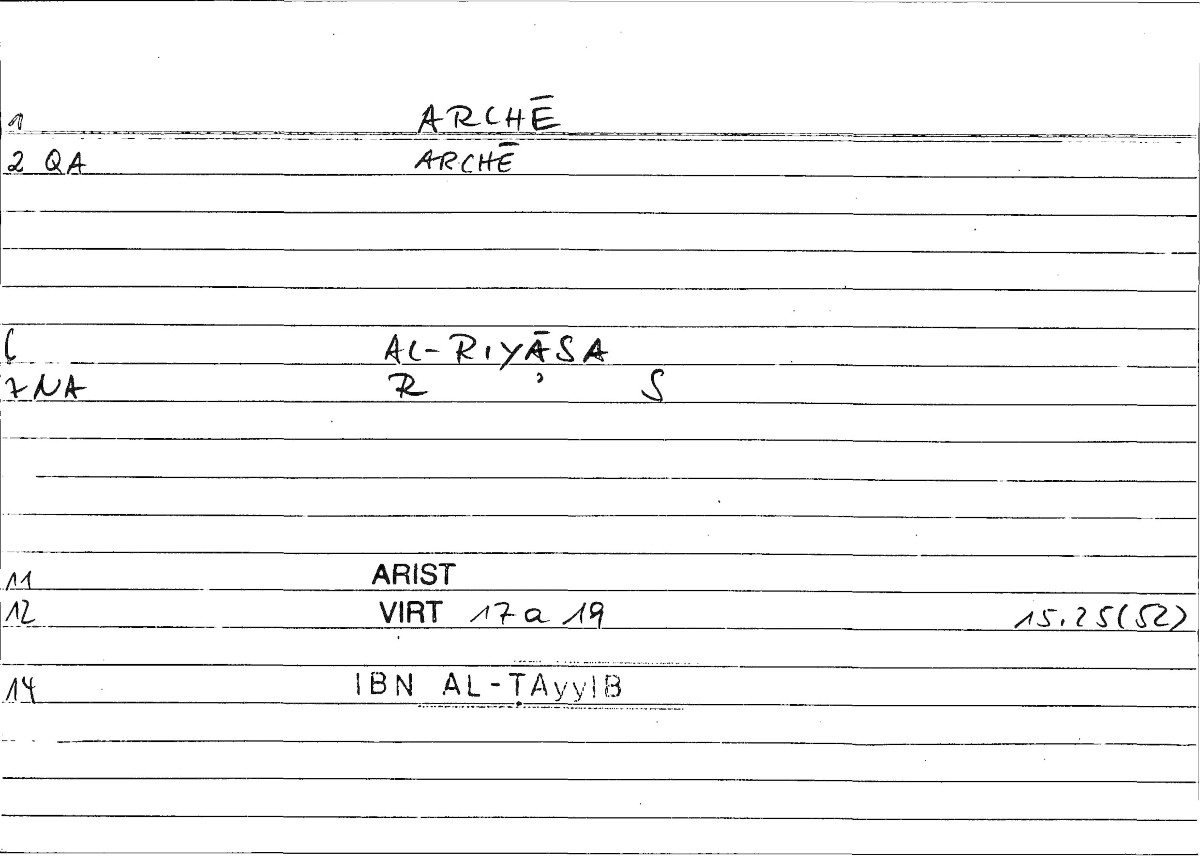 1 ARCHĒ
2 QA ARCHĒ
6 AL-RIYĀSA
7 NA R ʾ S
11 ARIST
12 VIRT 17 a 19 15.25(52)
14 IBN AL-ṬAyyIB